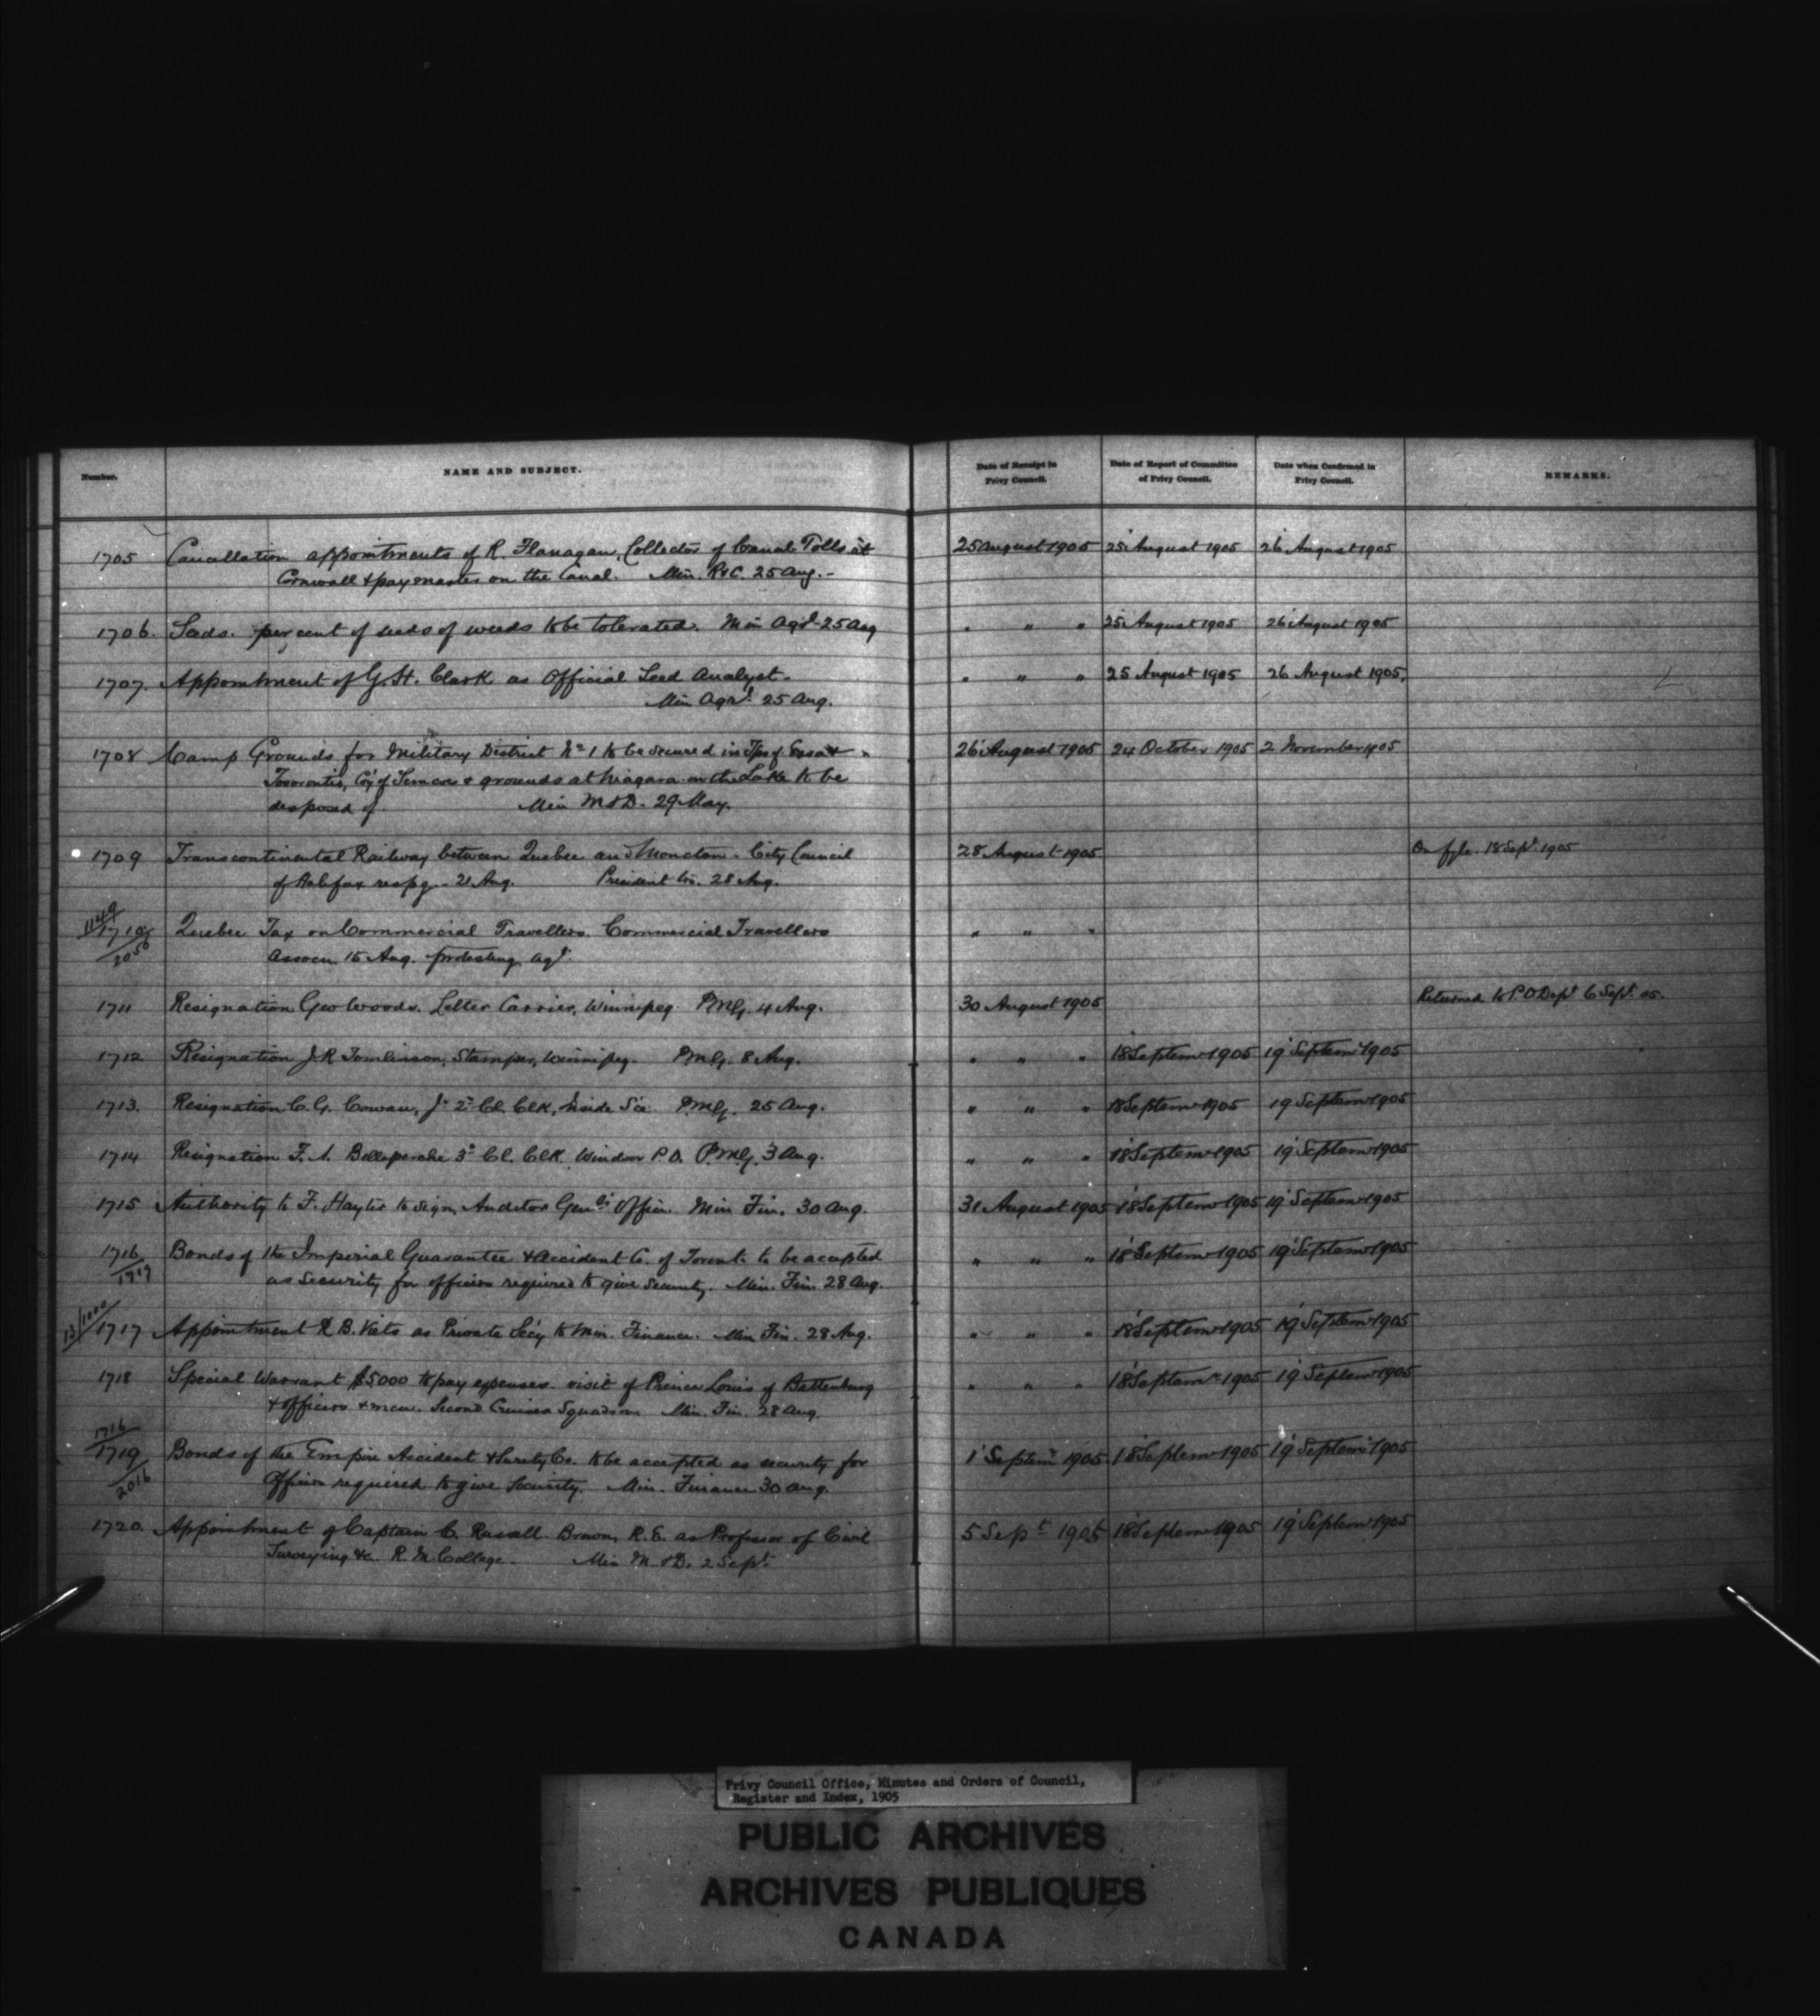 Number.
NAME AND SUBJECT.
Date of Receipt in
Privy Council.
Date of Report of Committee
of Privy Council.
Date when Confirmed in
Privy Council.
REMARKS.
1705 Cancellation appointments of R. Flanagan, Collector of Canal Tolls at 25 August 1905 25 August 1905 26 August 1905
Cornwall & paymaster on the Canal. Min. R&C. 25 Aug.-
1706. Seeds. per cent of seeds of weeds to be tolerated. Min Agrl 25 Aug " " " 25 August 1905 26 August 1905
1707. Appointment of G. H. Clark as Official Seed Analyst. " " " 25 August 1905 26 August 1905.
Min Agrl. 25 Aug.
1708 Camp Grounds for Military District No 1 to be secured in Tps of Essa & 26 August 1905 24 October 1905 2 November 1905
Tosorontio, Coy of Simcoe & grounds at Niagara-on-the-Lake to be
disposed of. Min M&D. 29 May.
1709 Transcontinental Railway between Quebec and Moncton. City Council 28 August 1905 On fyle. 18 Sept. 1905
of Halifax respg. 21 Aug. President Co. 28 Aug.
1149
1710 Quebec Tax on Commercial Travellers. Commercial Travellers " " "
2050 Assocn. 15 Aug. protesting agt.
1711 Resignation Geo Woods. Letter Carrier, Winnipeg PMG. 4 Aug. 30 August 1905 Returned to P O Dept 6 Sept. 05.
1712 Resignation J.R Tomlinson, Stamper, Winnipeg. PMG. 8 Aug. " " " 18 Septemr 1905 19 Septemr 1905
1713. Resignation C. G. Cowan, Jr 2d Cl. Clk, Inside Sce PMG. 25 Aug. " " " 18 Septemr 1905 19 Septemr 1905
1714 Resignation F. A. Belleperche 3d Cl. Clk. Windsor P.O. PMG. 3 Aug. " " " 18 Septemr 1905 19 Septemr 1905
1715 Authority to F. Hayter to sign, Auditor Genl's Office Min Fin. 30 Aug. 31 August 1905 18 Septemr 1905 19 Septemr 1905
1716 Bonds of the Imperial Guarantee & Accident Co. of Toronto to be accepted " " " 18 Septemr 1905 19 Septemr 1905
1719 as security for officers required to give security. Min. Fin. 28 Aug.
13/1000
1717 Appointment R B. Viets as Private Sec'y to Min. Finance. Min Fin. 28 Aug. " " " 18 Septemr 1905 19 Septemr 1905
1718 Special Warrant $5000 to pay expenses. visit of Prince Louis of Battenburg " " " 18 Septemr 1905 19 Septemr 1905
& officers & men. Second Cruiser Squadron Min. Fin. 28 Aug.
1716
1719 Bonds of the Empire Accident & Surety Co. to be accepted as security for 1 Septemr 1905 18 Septemr 1905 19 Septemr 1905
2016 Officers required to give Security. Min. Finance 30 Aug.
1720. Appointment of Captain C. Russell Brown, R. E. as Professor of Civil 5 Sept 1905 18 Septemr 1905 19 Septemr 1905
Surveying &c. R. M. College. Min M.&D. 2 Sept.
Privy Council Office, Minutes and Orders of Council,
Register and Index, 1905
PUBLIC ARCHIVES
ARCHIVES PUBLIQUES
CANADA